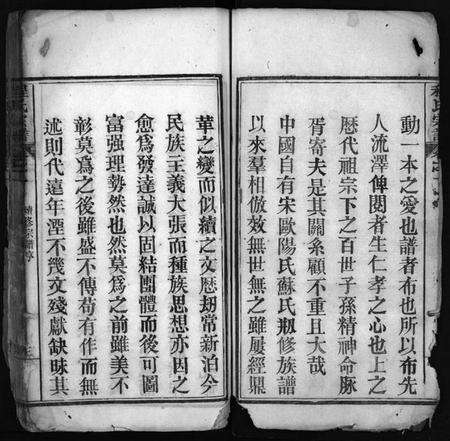 動一本之愛也譜者布也所以布先
人流澤俾閱者生仁孝之心也上之
歷代祖宗下之百世子孫精神命脉
胥寄夫是其關系顧不重且大哉
中國自有宋歐陽氏蘇氏剏修族譜
以來羣相倣效無世無之雖屢經鼎
革之變而似續之文歷刼常新泊今
民族主義大張而種族思想亦因之
愈爲發達誠以固結團體而後可圖
富强理勢然也然莫爲之前雖美不
彰莫爲之後雖盛不傳苟有作而無
述則代遠年湮不幾文殘獻缺昧其